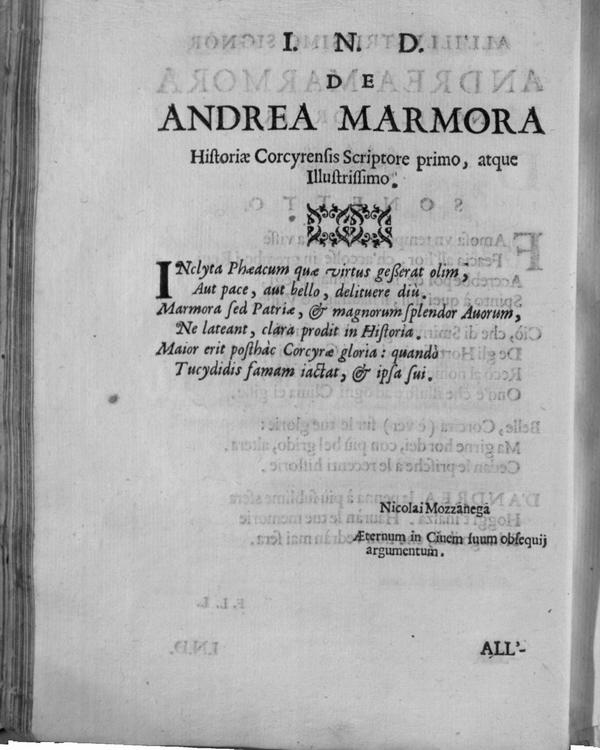 I. N. D.
DE
ANDREA MARMORA
Hiſtoriæ Corcyrenſis Scriptore primo, atque
Illuſtriſſimo.
INclyta Phæacum quæ virtus geſſerat olim,
Aut pace, aut bello, delituere diù.
Marmora ſed Patriæ, & magnorum ſplendor Auorum,
Ne lateant, clara prodit in Hiſtoria.
Maior erit poſthàc Corcyræ gloria: quandò
Tucydidis famam iactat, & ipſa ſui.
Nicolai Mozzanega
Æternum in Ciuem ſuum obſequij
argumentum.
ALL'-